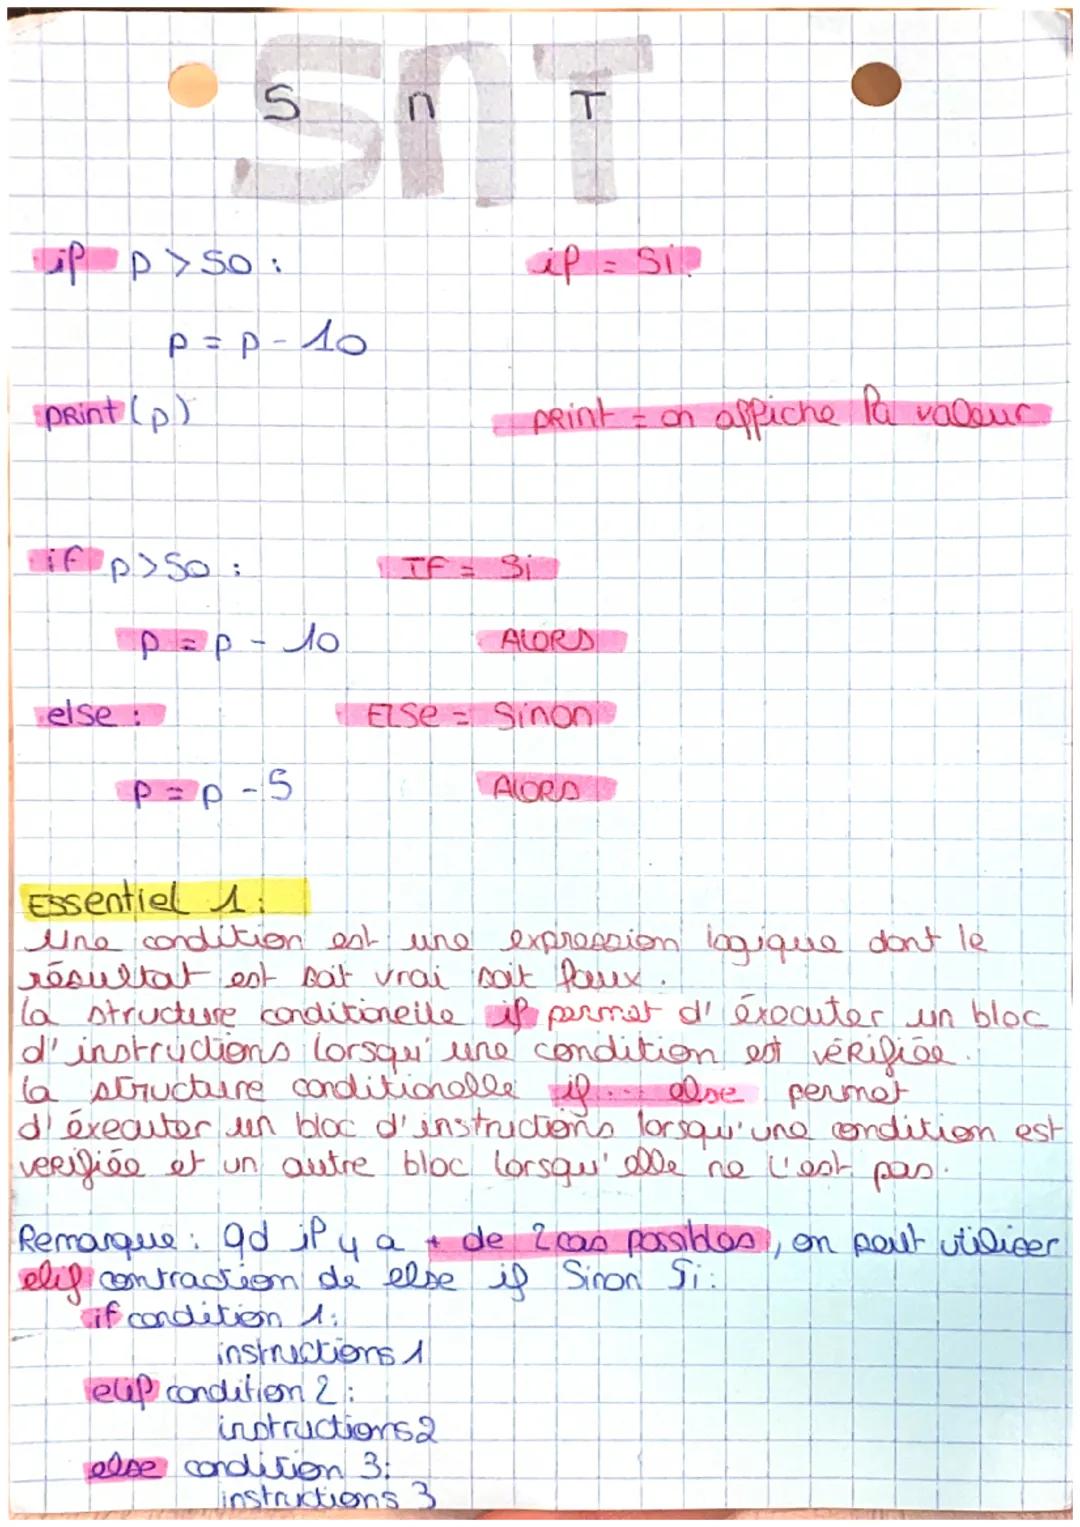 SnT
S n T
if p > 50 :
if = Si
p = p - 10
print (p)
print = on affiche la valeur
if p > 50 :
IF = Si
p = p - 10
ALORS
else :
ELSE = Sinon
p = p - 5
ALORS
Essentiel 1 :
Une condition est une expression logique dont le
résultat est soit vrai soit faux.
la structure conditionelle if permet d'éxecuter un bloc
d'instructions lorsqu'une condition est vérifiée.
la structure conditionelle if... else permet
d'éxecuter un bloc d'instructions lorsqu'une condition est
verifiée et un autre bloc lorsqu'elle ne l'est pas.
Remarque : qd il y a + de 2 cas possibles, on peut utiliser
elif contraction de else if Sinon Si :
if condition 1 :
instructions 1
elif condition 2 :
instructions 2
else condition 3 :
instructions 3